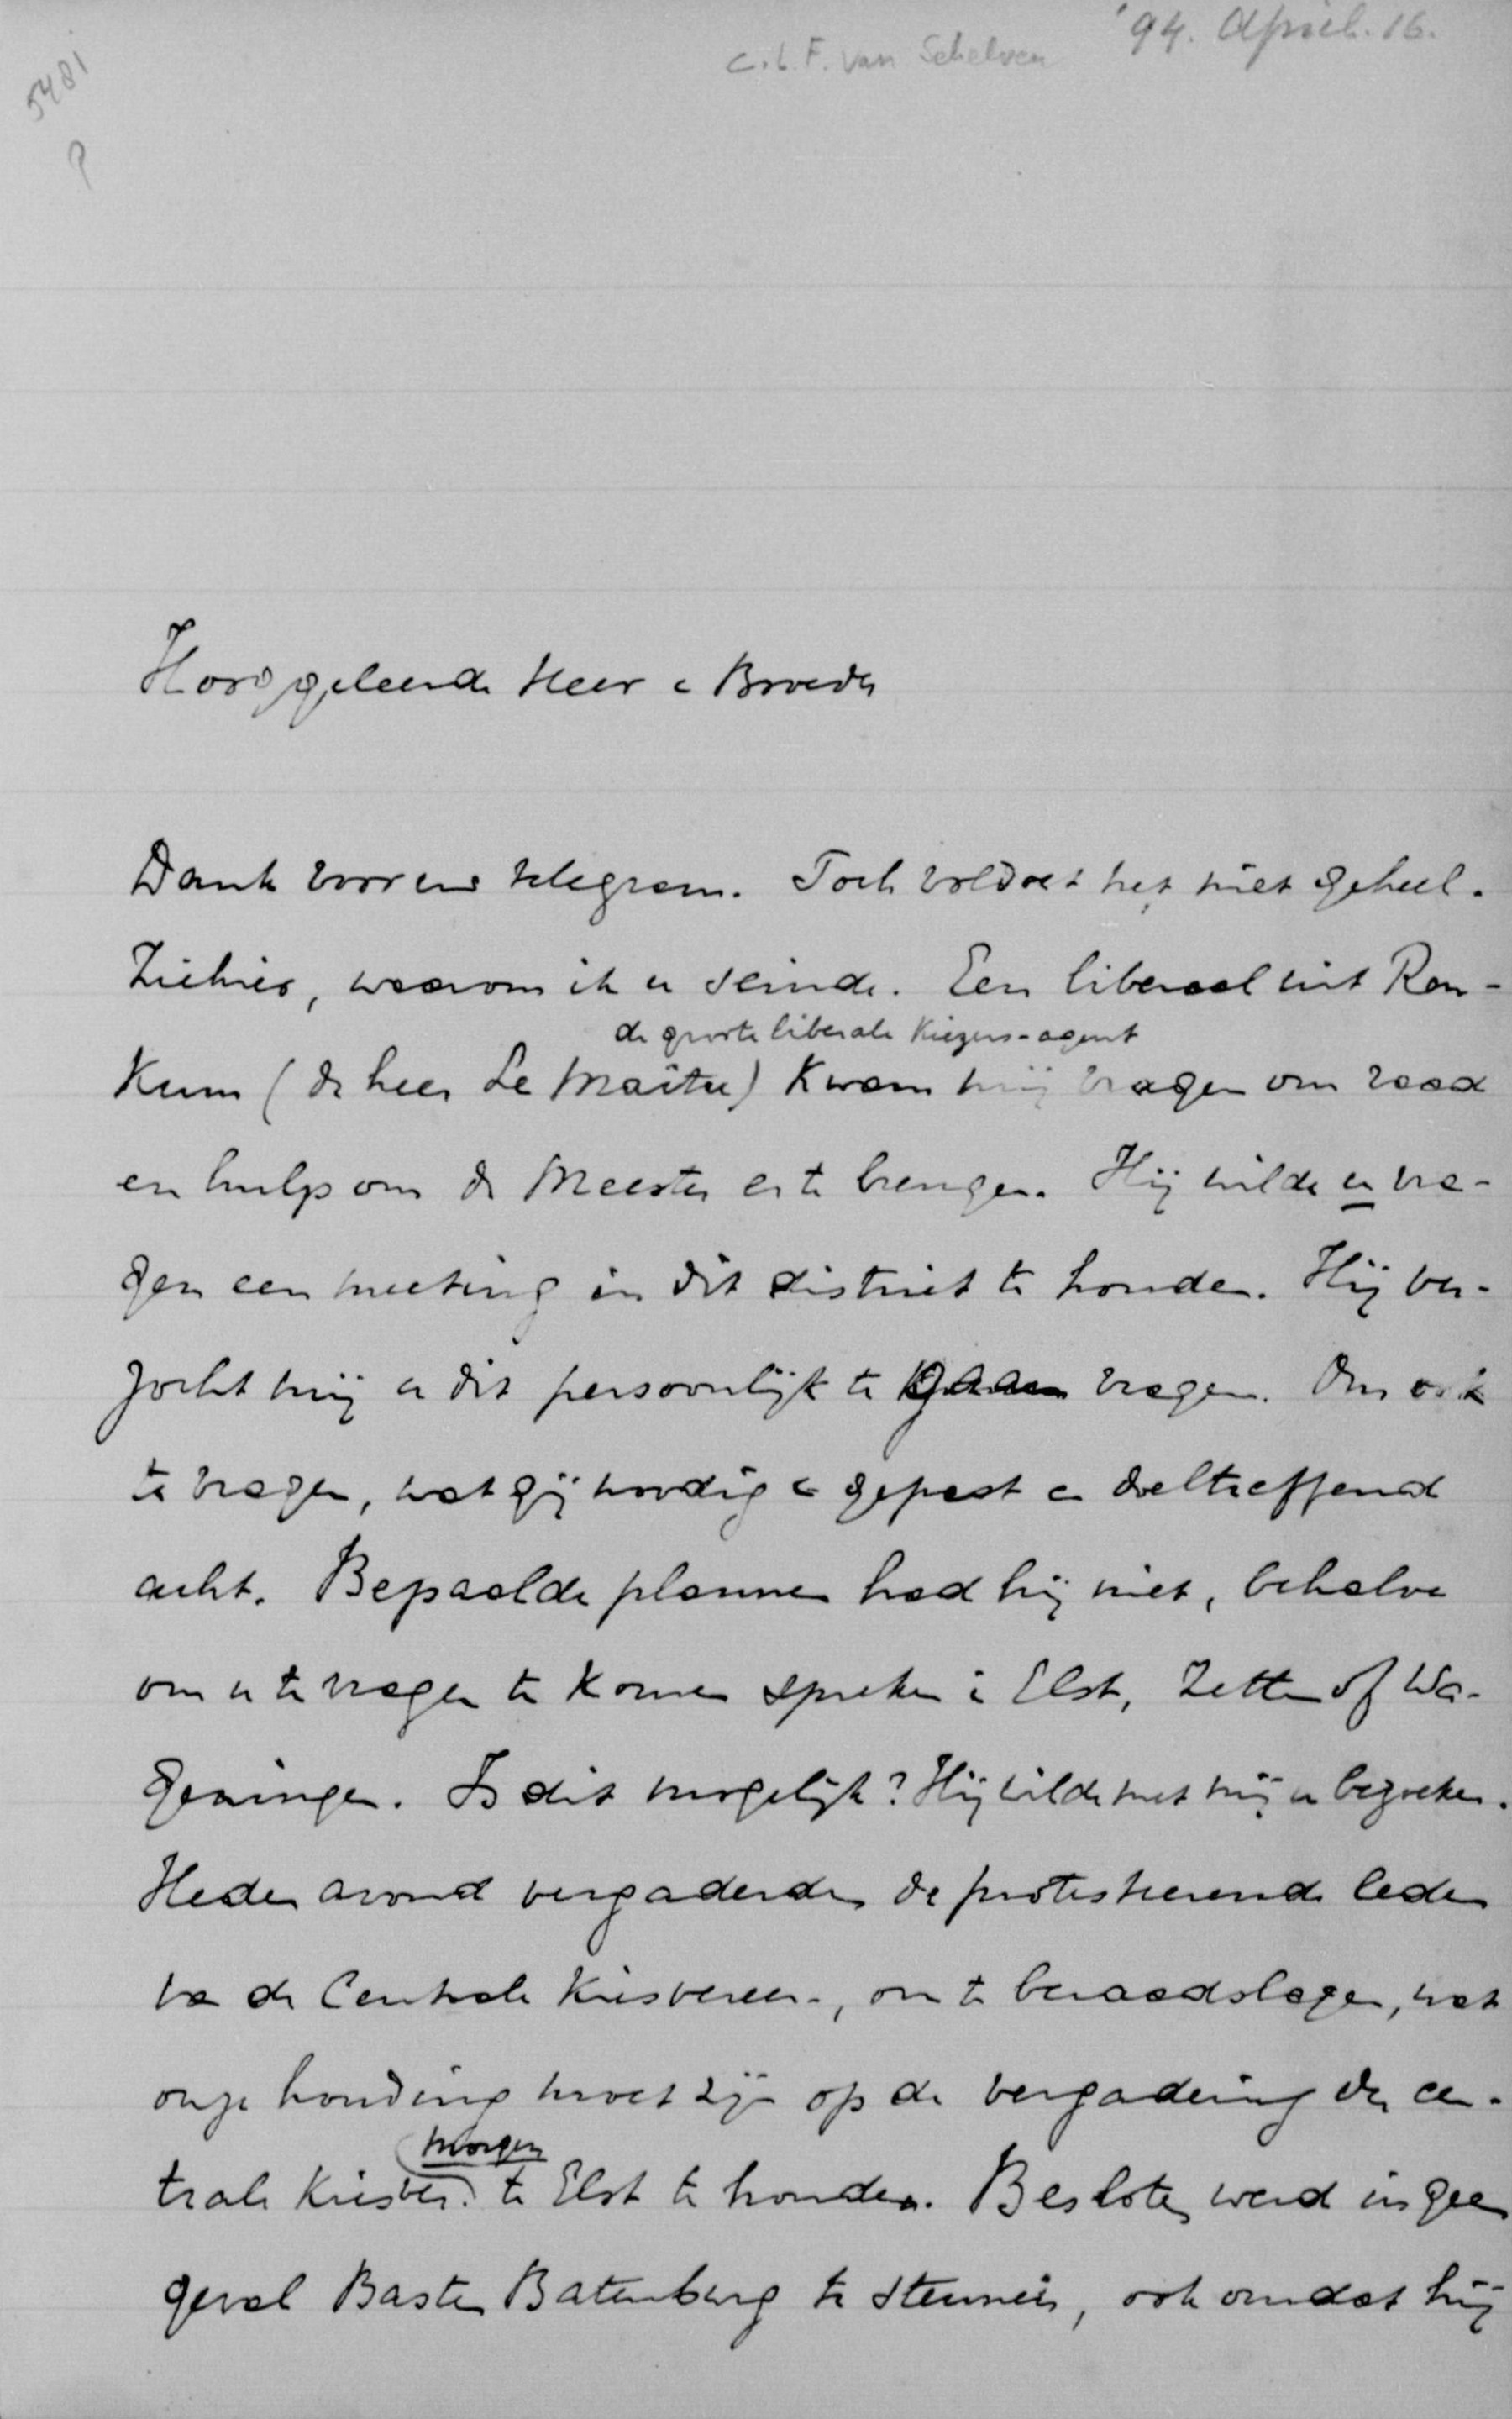 '94. April. 16.
C. L. F. van Schelven
5481
P
Hooggeleerde Heer e Broeder
Dank voor uw telegram. Toch voldoet het niet geheel.
Ziehier, waarom ik u seinde. Een liberaal uit Ren-
de groote liberale Kiezers-agent
Kum (de heer Le Maître) Kwam mij vragen om raad
en hulp om de Meester er te brengen. Hij wilde u vra-
gen een meeting in dit district te houden. Hij ver-
zocht mij u dit persoonlijk te gaan vragen. Om ook
te vragen, wat gij noodig e gepast e doeltreffend
acht. Bepaalde plannen had hij niet, behalve
om u te vragen te komen spreken i Elst, Zetten of Wa-
geningen. Is dit mogelijk? Hij wilde met mij u bezoeken.
Heden avond vergaderden de protesteerende leden
va de Centrale Kiesvereen., om te beraadslagen, wat
onze houding moet zijn op de vergadering der cen-
morgen
trale Kiesver. te Elst te houden. Besloten werd in geen
geval Basten Batenburg te steunen, ook omdat hij